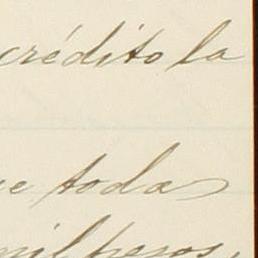 crédito la
e todas
mil pesos,